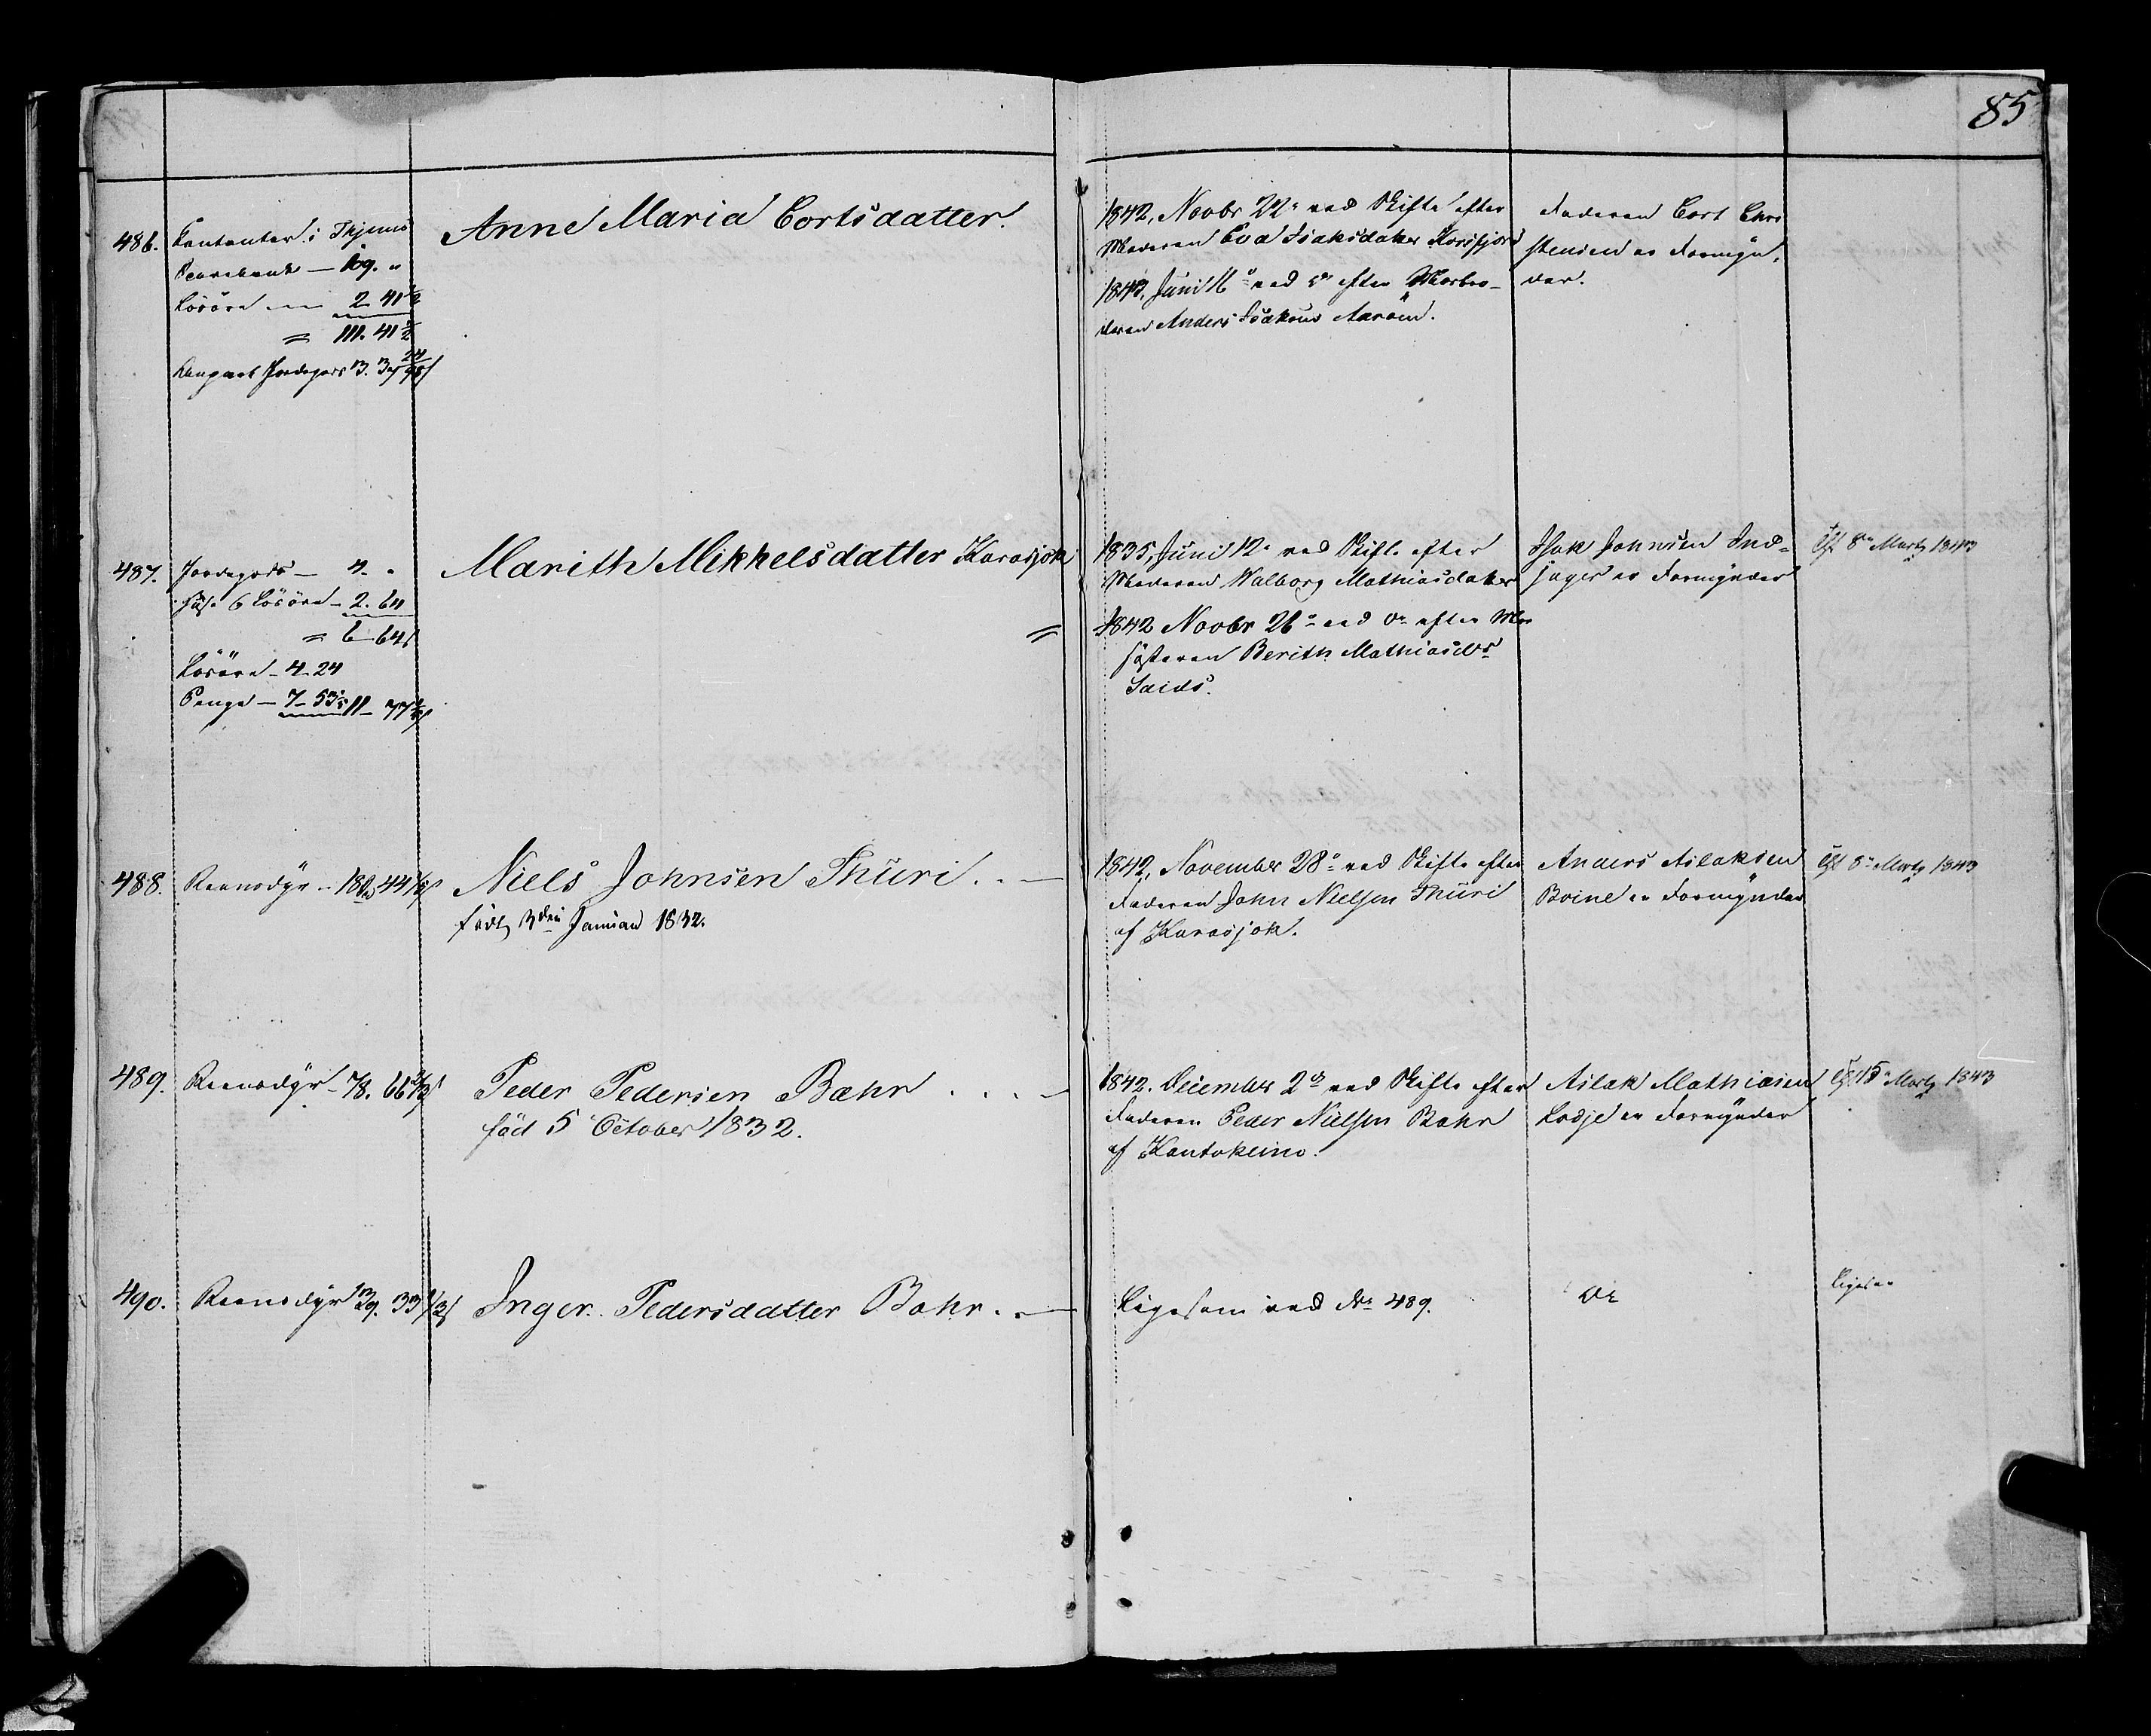 85
486. Contanter i Thjems
Sparebank — 109. "
Lösöre — 2 41 1/2
= 111. 41 1/2
Jordegods 3. 3
Anne Maria Cortsdatter.
1842, Novbr 22de ved Skifte efter
Moderen Eva Isaksdatter Korsfjord
1843, Juni 16de ved do efter Morbro-
deren Anders Isaksens Aaröen.
Faderen Cort Chri
stensen er Formyn,
der.
487. Jordegods — 4. "
6 Lösöre — 2. 64
= 6 64
Lösöre — 4. 24
Penge — 7 — 53 11 — 77
Marith Mikkelsdatter Karasjok
=
1835, Juni 12te ved Skifte efter
Moderen Walborg Mathiasdatter
1842 Novbr 26de ved do efter Mo
sösteren Berith Mathiasdr
Saids.
Isak Johnsen Ind-
jager er Formynder
8de Marts 1843
488. Reensdyr — 180 44
Niels Johnsen Thuri . . —
född 3die Januar 1832.
1842, November 28de ved Skifte efter
Faderen John Nielsen Thuri
af Karasjok.
Anders Aslaksen
Boine er Formynder
8de Marts 1843
489. Reensdyr — 78. 66 2/3
Peder Pedersen Bahr . . . —
föd 5 October 1832.
1842. December 2den ved Skifte efter
Faderen Peder Nielsen Bahr
af Kautokeino.
Aslak Mathiesen
Lodje er Formynder
15de Marts 1843
490. Reensdyr 39. 33 1/3
Inger Pedersdatter Bahr . . —
Ligesom ved No 489.
Do
Ligesaa